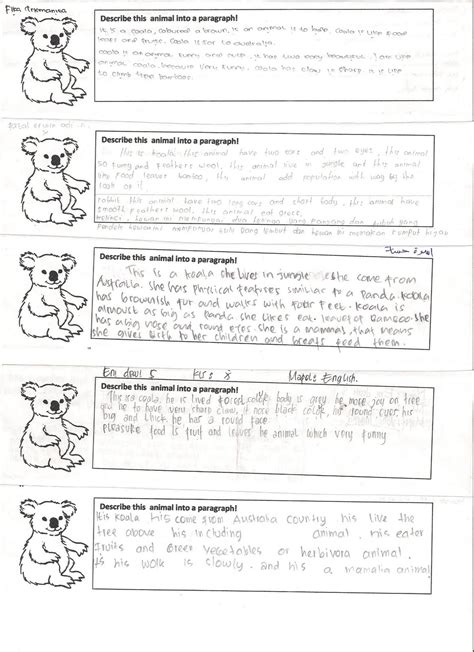 Describe this animal into a paragraph!
It is a coala, coloured a brown, is an animal is to hide, coala is like food
leaves and fruge. Coala is for to australia.
coala is an animal funny and cute, is has two very beautiful. I am like
animal coala, because very funny. coala has claw is sharp a is like
to climb tree bamboos.
Describe this animal into a paragraph!
This is koala. This animal have two ears and two eyes, this animal
so funny and feathers wool, this animal live in jungle and this animal
food leaves bamboo, this animal add population with way
rabbit this animal have two long ears and short body, this animal have
smooth feathers wool, this animal eat grass.
kelinci, hewan ini mempunyai dua telinga yang panjang dan tubuh yang
pendek hewan ini mempunyai bulu yang lembut dan hewan ini memakan rumput hijau
Describe this animal into a paragraph!
This is a koala she lives in jungle she come from
Australia. she has physical features similar to a Panda. koala
has brownish fur and walks with four feet. Koala is
almoust as big as panda she likes eat leaves of Bamboo. she
has a big nose and round eyes. she is a mammas, that means
she gives birth to her children and breats feed them.
Kls : X
Mapel : English.
Describe this animal into a paragraph!
This is a coala, he is lived forest, body is grey he more joy on tree
and he to have very sharp claw, it nose black his round eyes, his
big and thick he has a round face.
pleasure food is fruit and leaves, he animal which very funny
Describe this animal into a paragraph!
It is koala his come from Australia country. his live the
tree above his including animal. his eator
fruits and green vegetables or herbivora animal.
is his wolk is slowly. and his a mamalia animal